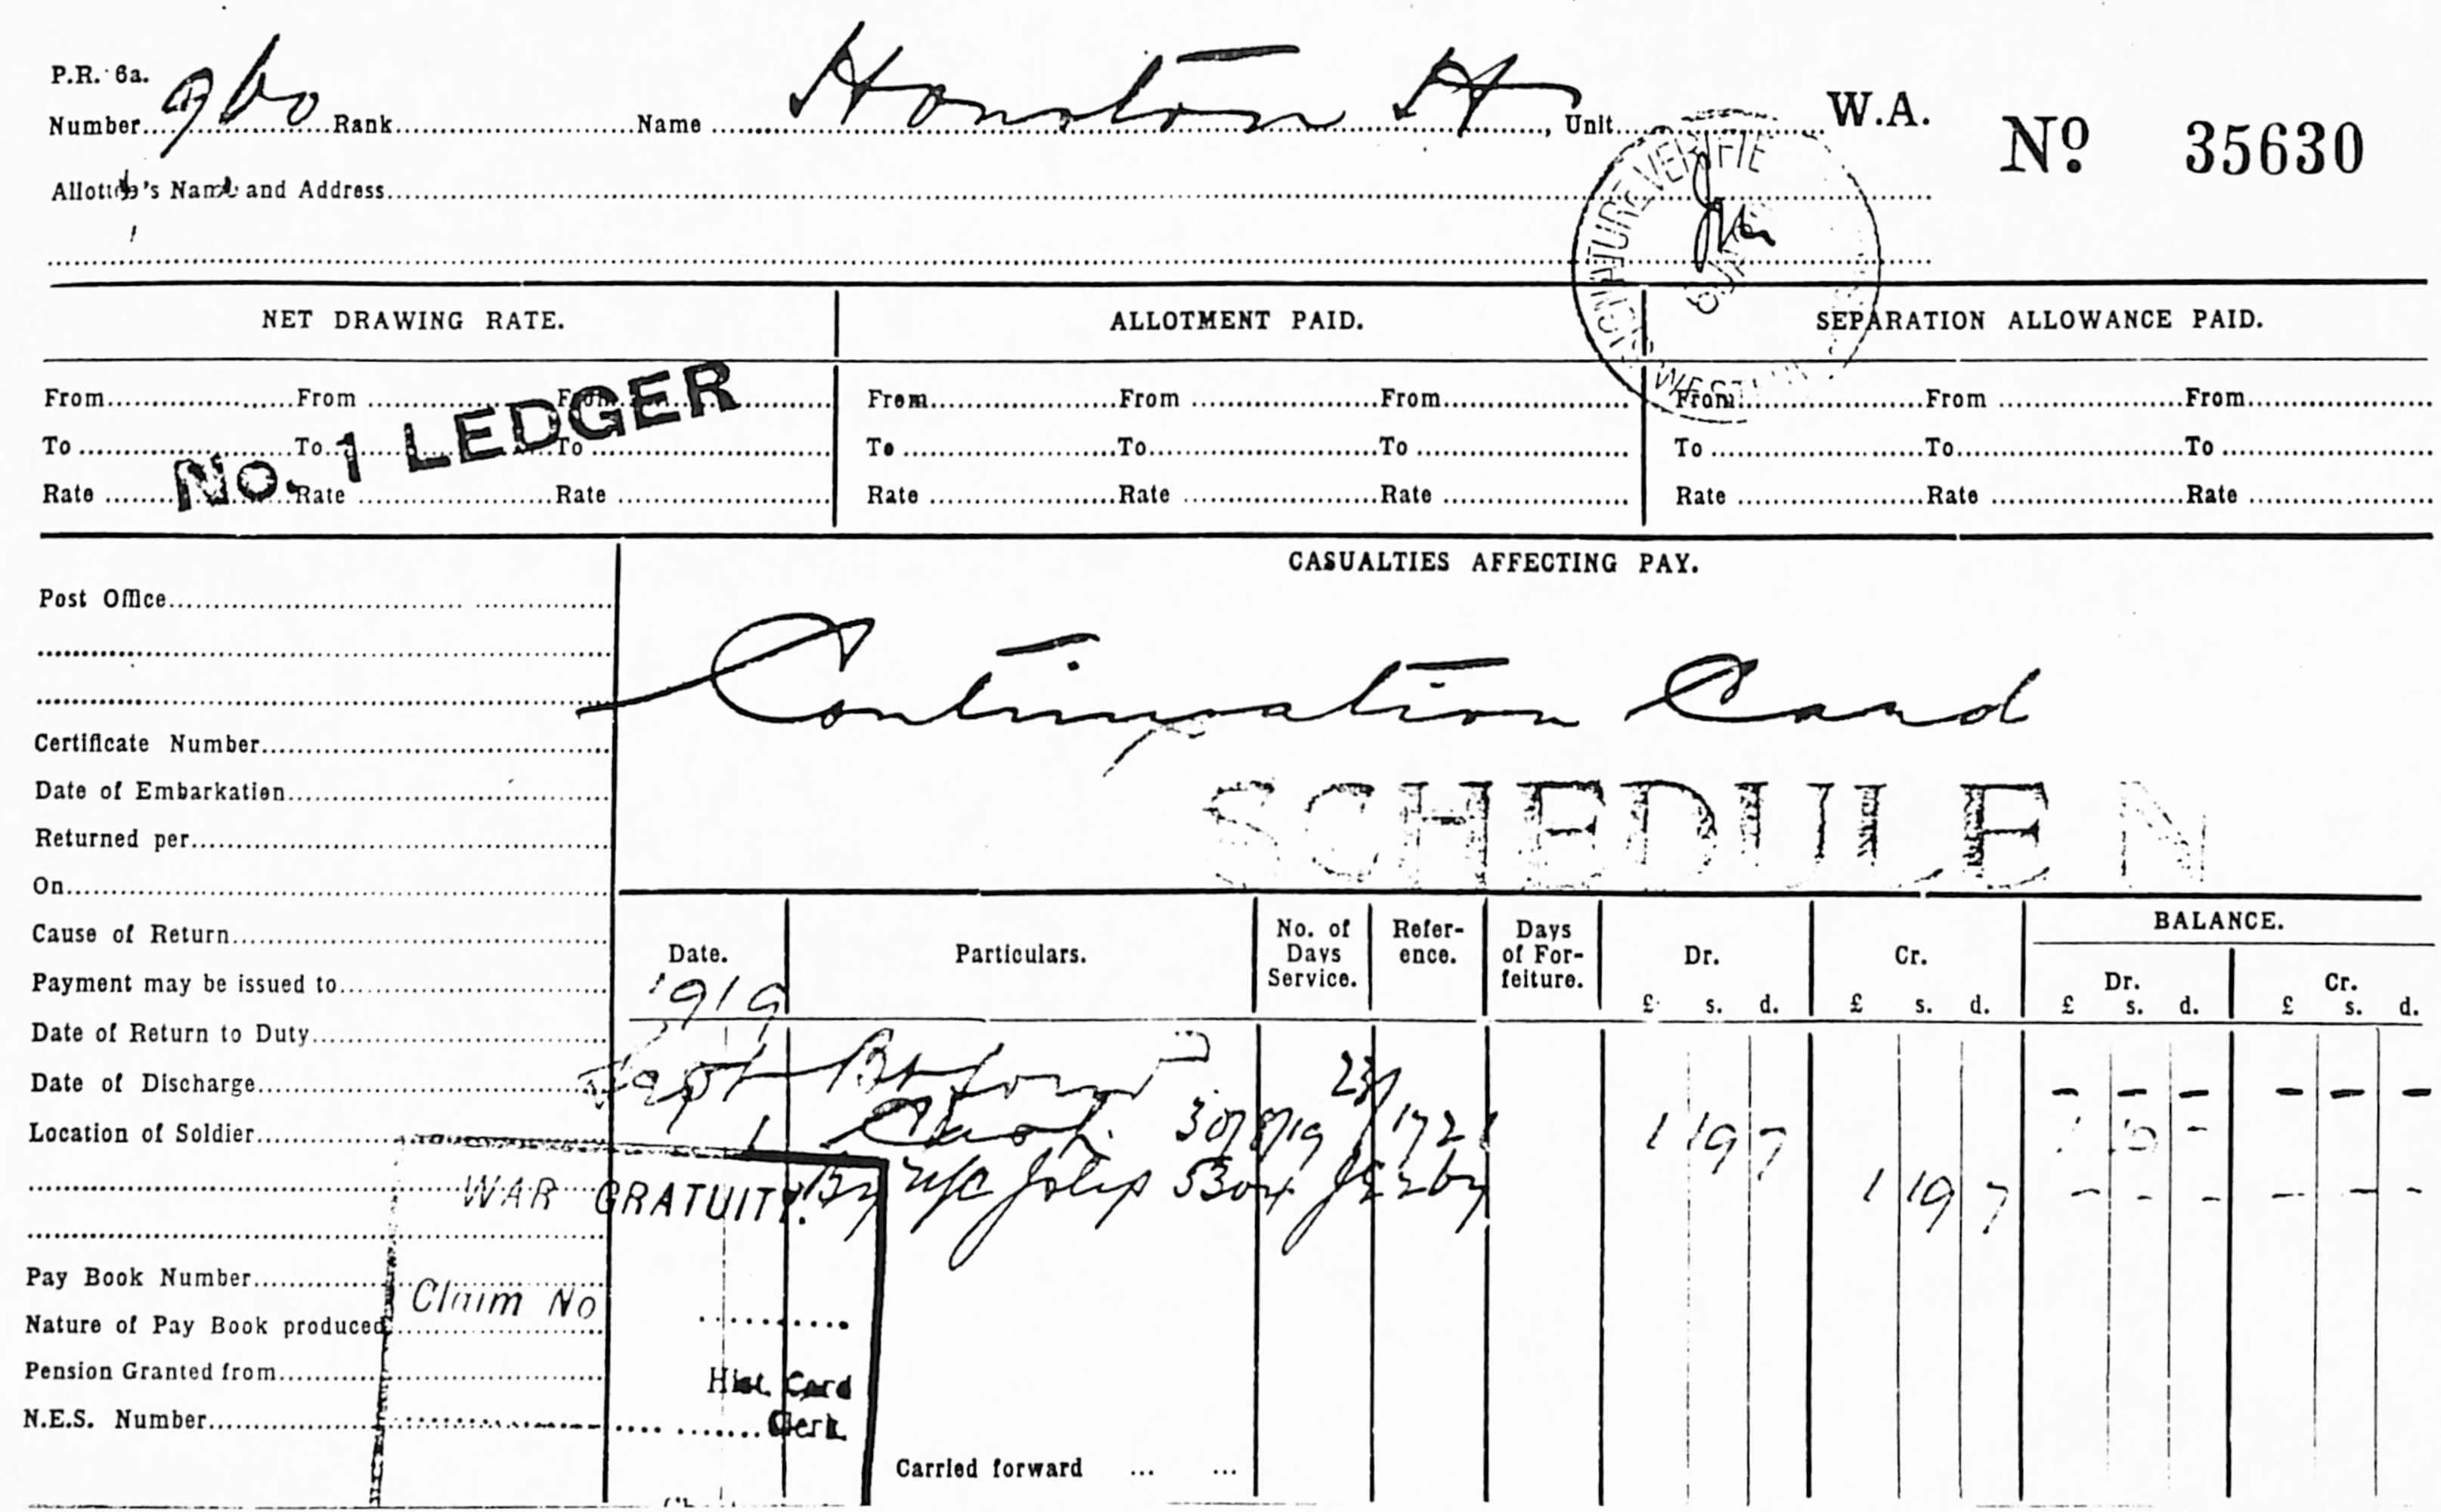 P.R. 6a.
Number 960 Rank Name Houston H, Unit W.A. No. 35630
Allottee's Name and Address
SIGNATURE VERIFIE
WEST
NET DRAWING RATE. ALLOTMENT PAID. SEPARATION ALLOWANCE PAID.
From From From From From From From From From
To To To To To To To To To
Rate Rate Rate Rate Rate Rate Rate Rate Rate
No. 1 LEDGER
CASUALTIES AFFECTING PAY.
Post Office
Continuation Card
Certificate Number
Date of Embarkation
SCHEDULE N
Returned per
On
Cause of Return
Payment may be issued to
Date of Return to Duty
Date of Discharge
Location of Soldier
Pay Book Number
Nature of Pay Book produced
Pension Granted from
N.E.S. Number
Date. Particulars. No. of Days Service. Reference. Days of Forfeiture. Dr. Cr. BALANCE.
Dr. Cr.
£ s. d. £ s. d. £ s. d. £ s. d.
1919
Sept Bt forwd - - - - - -
1 Cash 30/8/19 23/1721 1 19 7
By 1 19 7 - - - - - -
WAR GRATUITY.
Claim No
Hist. Card
Clerk
Carried forward ... ...